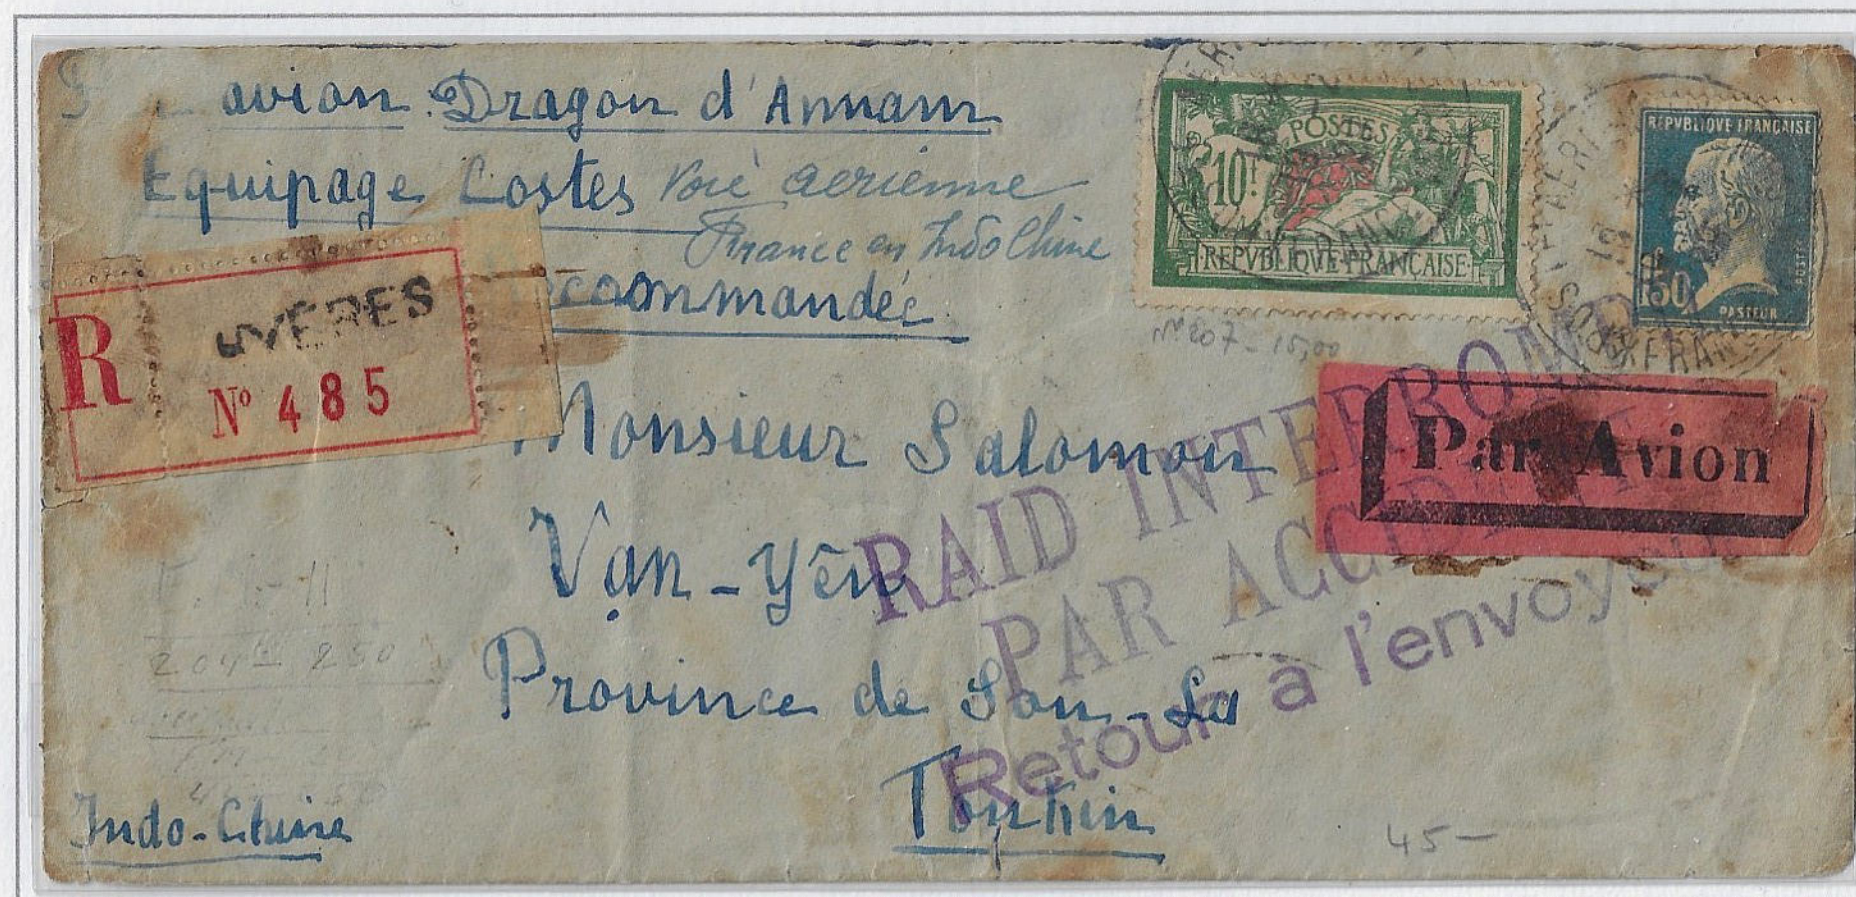 avion Dragon d'Annam
Equipage Costes Voie aerienne
France en Indo Chine
Recommandée
R HYÈRES
Nº 485
POSTES
10F
REPVBLIQVE FRANÇAISE
REPVBLIQVE FRANÇAISE
1F50
POSTES
PASTEUR
nº 207 - 15,00
Par Avion
Monsieur Salomon
Van-Yên
Province de Son-La
Tonkin
Indo-Chine
RAID INTERROMPU
PAR ACCIDENT
Retour à l'envoyeur
204 250
45-